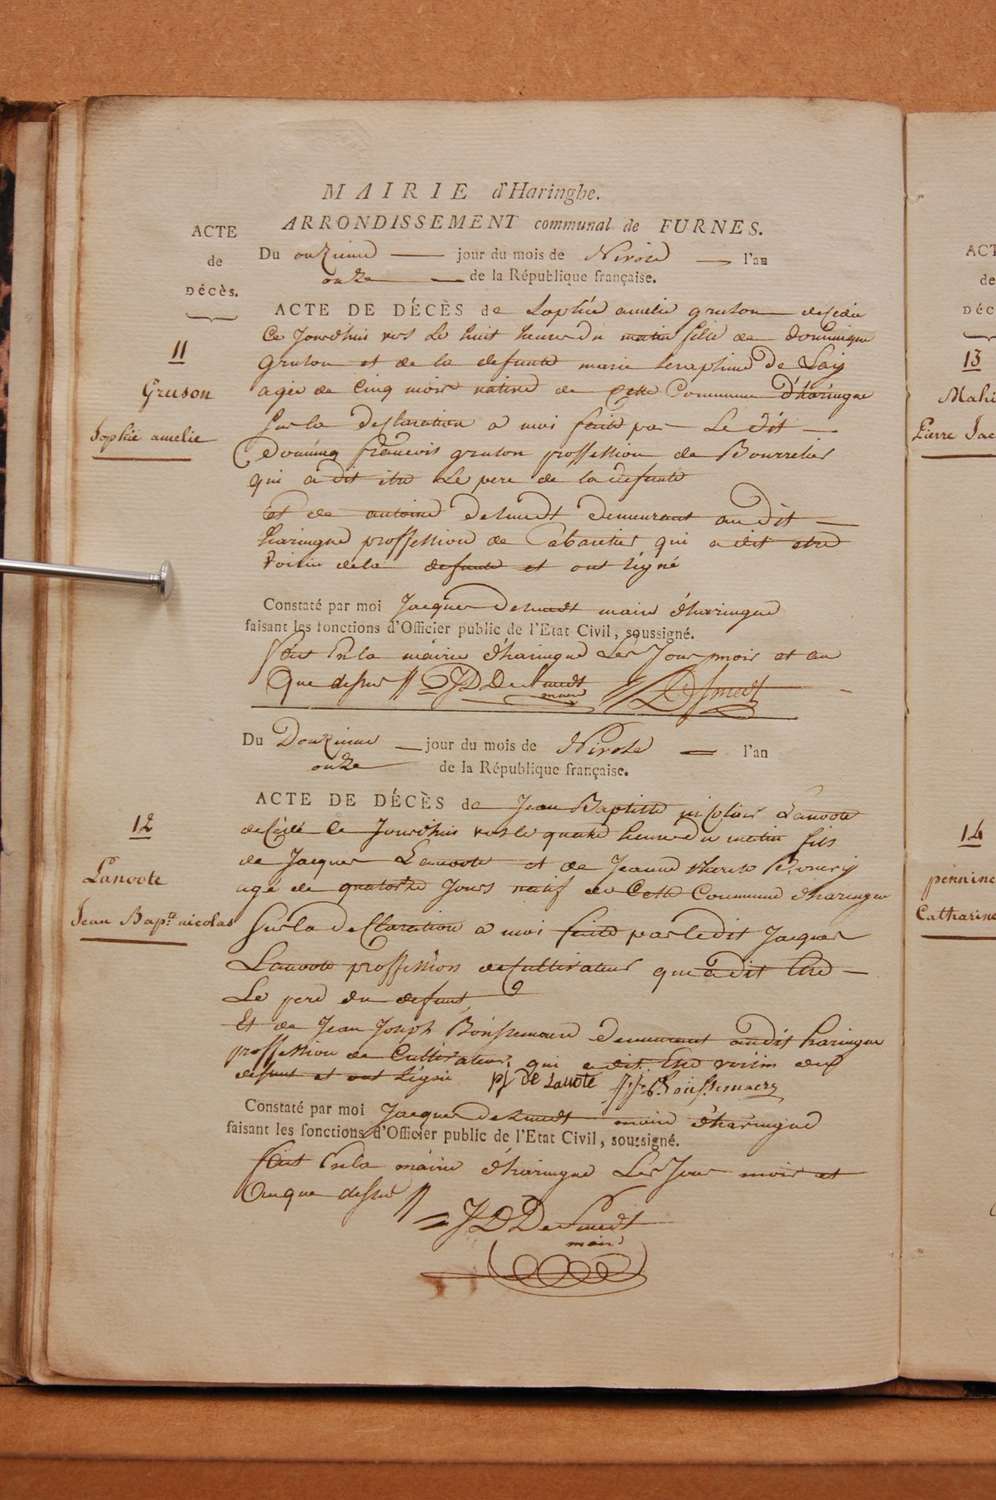 MAIRIE d'Haringhe.
ARRONDISSEMENT communal de FURNES.
ACTE
de
DÉCÈS.
Du onZieme jour du mois de Nivose l'an
onze de la République française.
11
Gruson
Sophie amelie
ACTE DE DÉCÈS de Sophie amelie gruson decedée
Ce Jourdhui vers Le huit heure du matin fille de dominique
gruson et de la defunte marie seraphine de Laij
agée de Cinq mois native de Cette Commune d'haringue
Sur la declaration a moi faite par Le dit
Doming francois gruson proffession de Bourrelier
qui a dit etre Le pere de la defunte
Et de antoine desmedt demeurant au dit
haringue proffession de Cabaretier qui a dit etre
voisin de la defunte et ont signé
Constaté par moi Jacques desmedt maire d'haringue
faisant les fonctions d'Officier public de l'Etat Civil, soussigné.
fait En la mairie d'haringue Les Jour mois et an
Que dessus // JD DeSmedt DSmedt
maire
Du DouZieme jour du mois de Nivose l'an
onZe de la République française.
12
Lanoote
Jean Bap.te nicolas
ACTE DE DÉCÈS de Jean Baptiste nicolais Lanoote
decédé Ce Jourdhui vers le quatre heure du matin fils
de Jacques Lanoote et de Jeanne therese
agé de quatorze Jours natif de Cette Commune d'haringue
Sur la declaration a moi faite par le dit Jacques
Lanoote proffession de Cultivateur qui a dit Etre
Le pere du defunt
Et de Jean Joseph Boüssemaere demeurant au dit haringue
proffession de Cultivateur, qui a dit Etre voisin du
defunt et ont signé pj de Lanote jj Boüssemaere
Constaté par moi Jacques desmedt maire d'haringue
faisant les fonctions d'Officier public de l'Etat Civil, soussigné.
fait En la mairie d'haringue Les Jour mois et
an que dessus //
JD DeSmedt
maire
ACT
de
DÉC
13
Mahi
Pierre Jac
14
pennine
Catharine